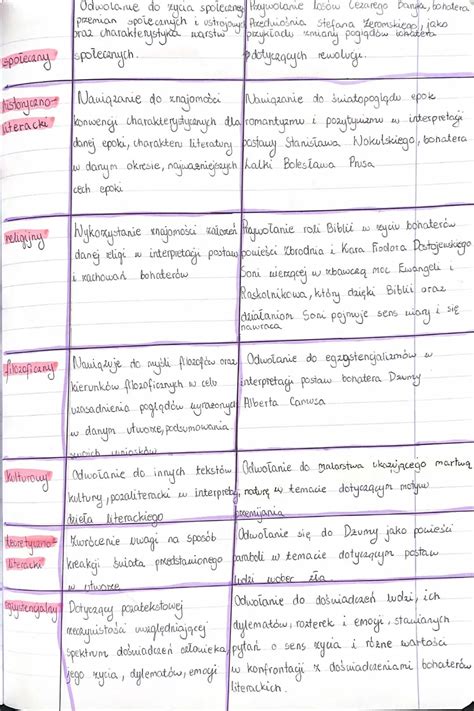 Odwołanie do życia społecznego
przemian społecznych i ustrojowych
oraz charakterystyka warstw
społecznych.
Przywołanie losów Cezarego Baryki, bohatera
Przedwiośnia Stefana Żeromskiego, jako
przykładu zmiany poglądów bohatera
dotyczących rewolucji.
społeczny
historyczno-
literacki
Nawiązanie do znajomości
konwencji charakterystycznych dla
danej epoki, charakteru literatury
w danym okresie, najważniejszych
cech epoki
Nawiązanie do światopoglądu epok
romantyzmu i pozytywizmu w interpretacji
postawy Stanisława Wokulskiego, bohatera
Lalki Bolesława Prusa
religijny
Wykorzystanie znajomości założeń
danej religi w interpretacji postaw
i zachowań bohaterów
Przywołanie roli Biblii w życiu bohaterów
powieści Zbrodnia i Kara Fiodora Dostojewskiego
Soni wierzącej w zbawczą moc Ewangeli i
Raskolnikowa, który dzięki Biblii oraz
działaniom Soni pojmuje sens wiary i się
nawraca
filozoficzny
Nawiązuje do myśli filozofów oraz
kierunków filozoficznych w celu
uzasadnienia poglądów wyrażonych
w danym utworze, podsumowania
swoich wniosków
Odwołanie do egzystencjalizmów w
interpretacji postaw bohatera Dżumy
Alberta Camusa
kulturowy
Odwołanie do innych tekstów
kultury, pozaliteracki w interpretacji
dzieła literackiego
Odwołanie do malarstwa ukazującego martwą
naturę w temacie dotyczącym motywu
przemijania
teoretyczno-
literacki
Zwrócenie uwagi na sposób
kreakcji świata przedstawionego
w utworze
Odwołanie się do Dżumy jako powieści
paraboli w temacie dotyczącym postaw
ludzi wobec zła
egzystencjalny
Dotyczący pozatekstowej
rzeczywistość uwzględniającej
spektrum doświadczeń człowieka,
jego życia, dylematów, emocji
Odwołanie do doświadczeń ludzi, ich
dylematów, rozterek i emocji, stawianych
pytań o sens życia i różne wartości
w konfrontacji z doświadczeniami bohaterów
literackich.